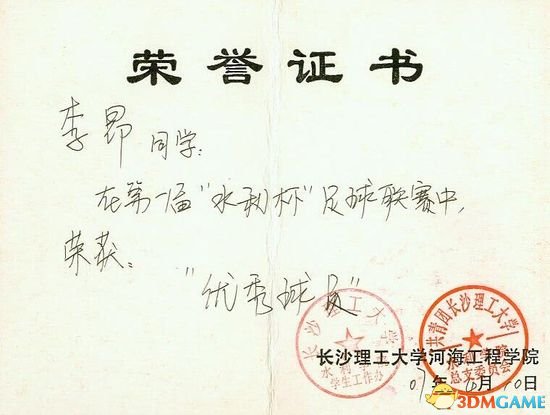 荣誉证书
李昂 同学:
在第一届"水利杯"足球联赛中,
荣获:
"优秀球员"
长沙理工大学
水利学院
学生工作办
共青团长沙理工大学
水利学院
总支委员会
长沙理工大学河海工程学院
07年 月10日
3DMGAME